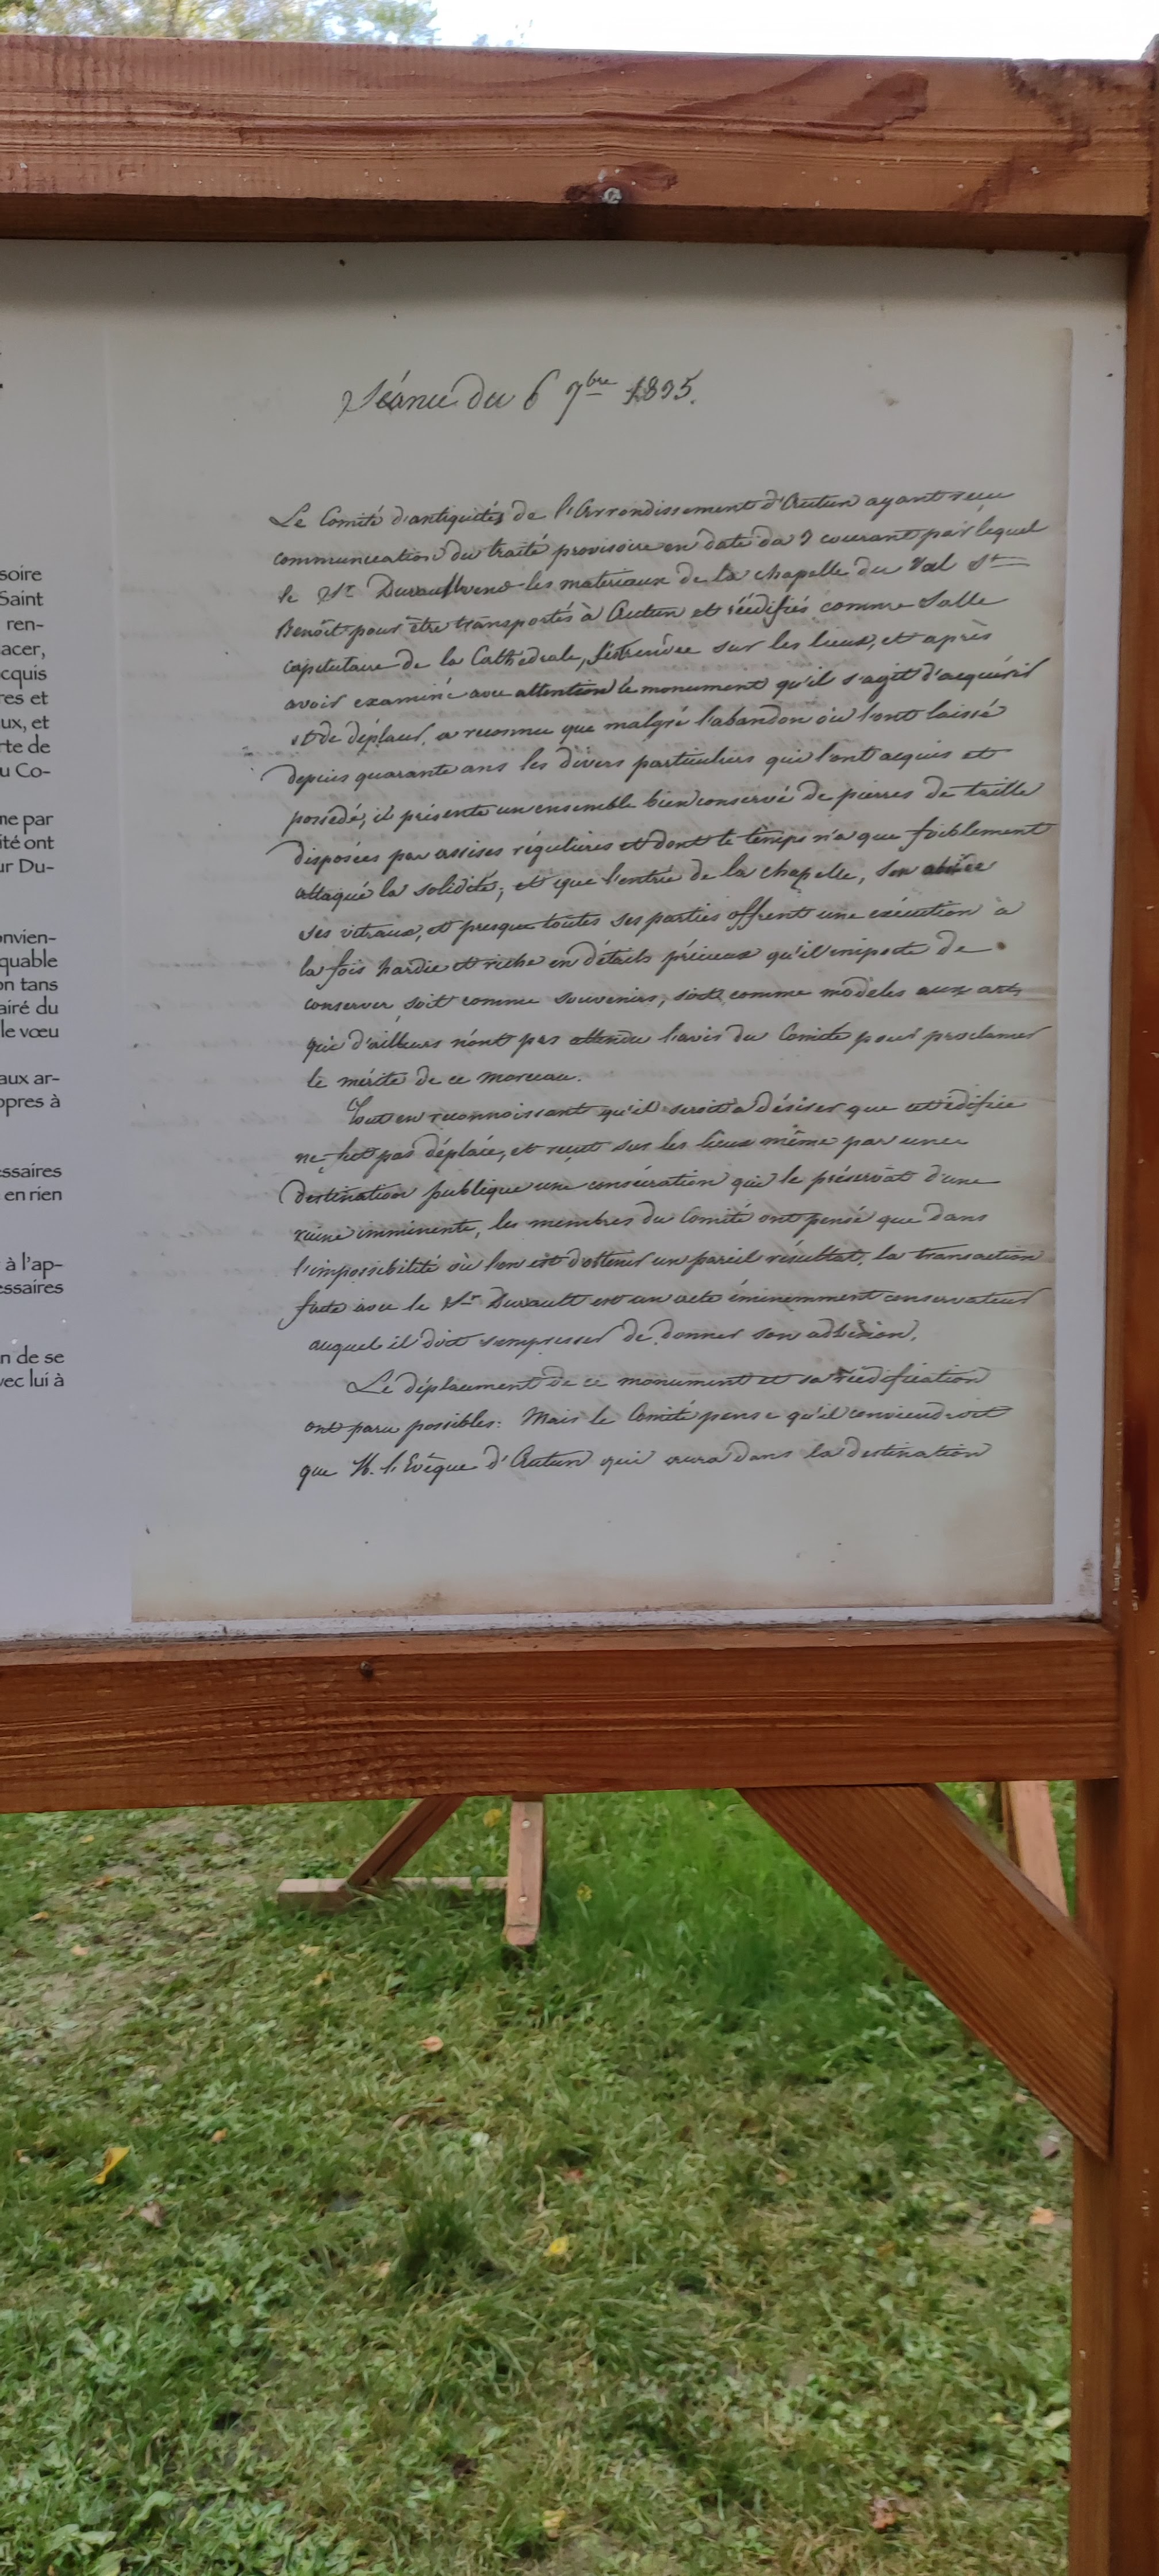 soire
Saint
ren-
acer,
cquis
res et
ux, et
rte de
u Co-
ne par
ité ont
ur Du-
onvien-
quable
on tans
airé du
le vœu
aux ar-
opres à
essaires
en rien
à l'ap-
essaires
n de se
vec lui à
Séance du 6 7bre 1835.
Le Comité d'antiquités de l'Arrondissement d'Autun ayant reçu
communication du traité provisoire en date du 3 courant par lequel
le Sr Durault vend les materiaux de la chapelle du Val St
Benoît pour être transportés à Autun et réédifiés comme Salle
capitulaire de la Cathédrale, sur les lieux, et après
avoir examiné avec attention le monument qu'il s'agit d'acquérir
et de déplacer, a reconnu que malgré l'abandon où l'ont laissé
depuis quarante ans les divers particuliers qui l'ont acquis et
possédé, il présente un ensemble bien conservé de pierres de taille
disposées par assises régulières et dont le temps n'a que foiblement
attaqué la solidité; et que l'entrée de la chapelle, son
ses vitraux, et presque toutes ses parties offrent une exécution à
la fois hardie et riche en détails précieux qu'il importe de
conserver soit comme souvenirs, soit comme modèles aux arts
qui d'ailleurs n'ont pas attendu l'avis du Comité pour proclamer
le mérite de ce morceau.
Tout en reconnoissant qu'il seroit à désirer que cet édifice
ne fut pas déplacé, et reçut sur les lieux même par une
destination publique une consécration qui le préservât d'une
ruine imminente, les membres du Comité ont pensé que dans
l'impossibilité où l'on est d'obtenir un pareil résultat, la transaction
faite avec le Sr Durault est un acte éminemment conservateur
auquel il doit s'empresser de donner son adhésion.
Le déplacement de ce monument et sa réédification
ont paru possibles: Mais le Comité pense qu'il conviendroit
que M. l'Evêque d'Autun qui aura dans la destination